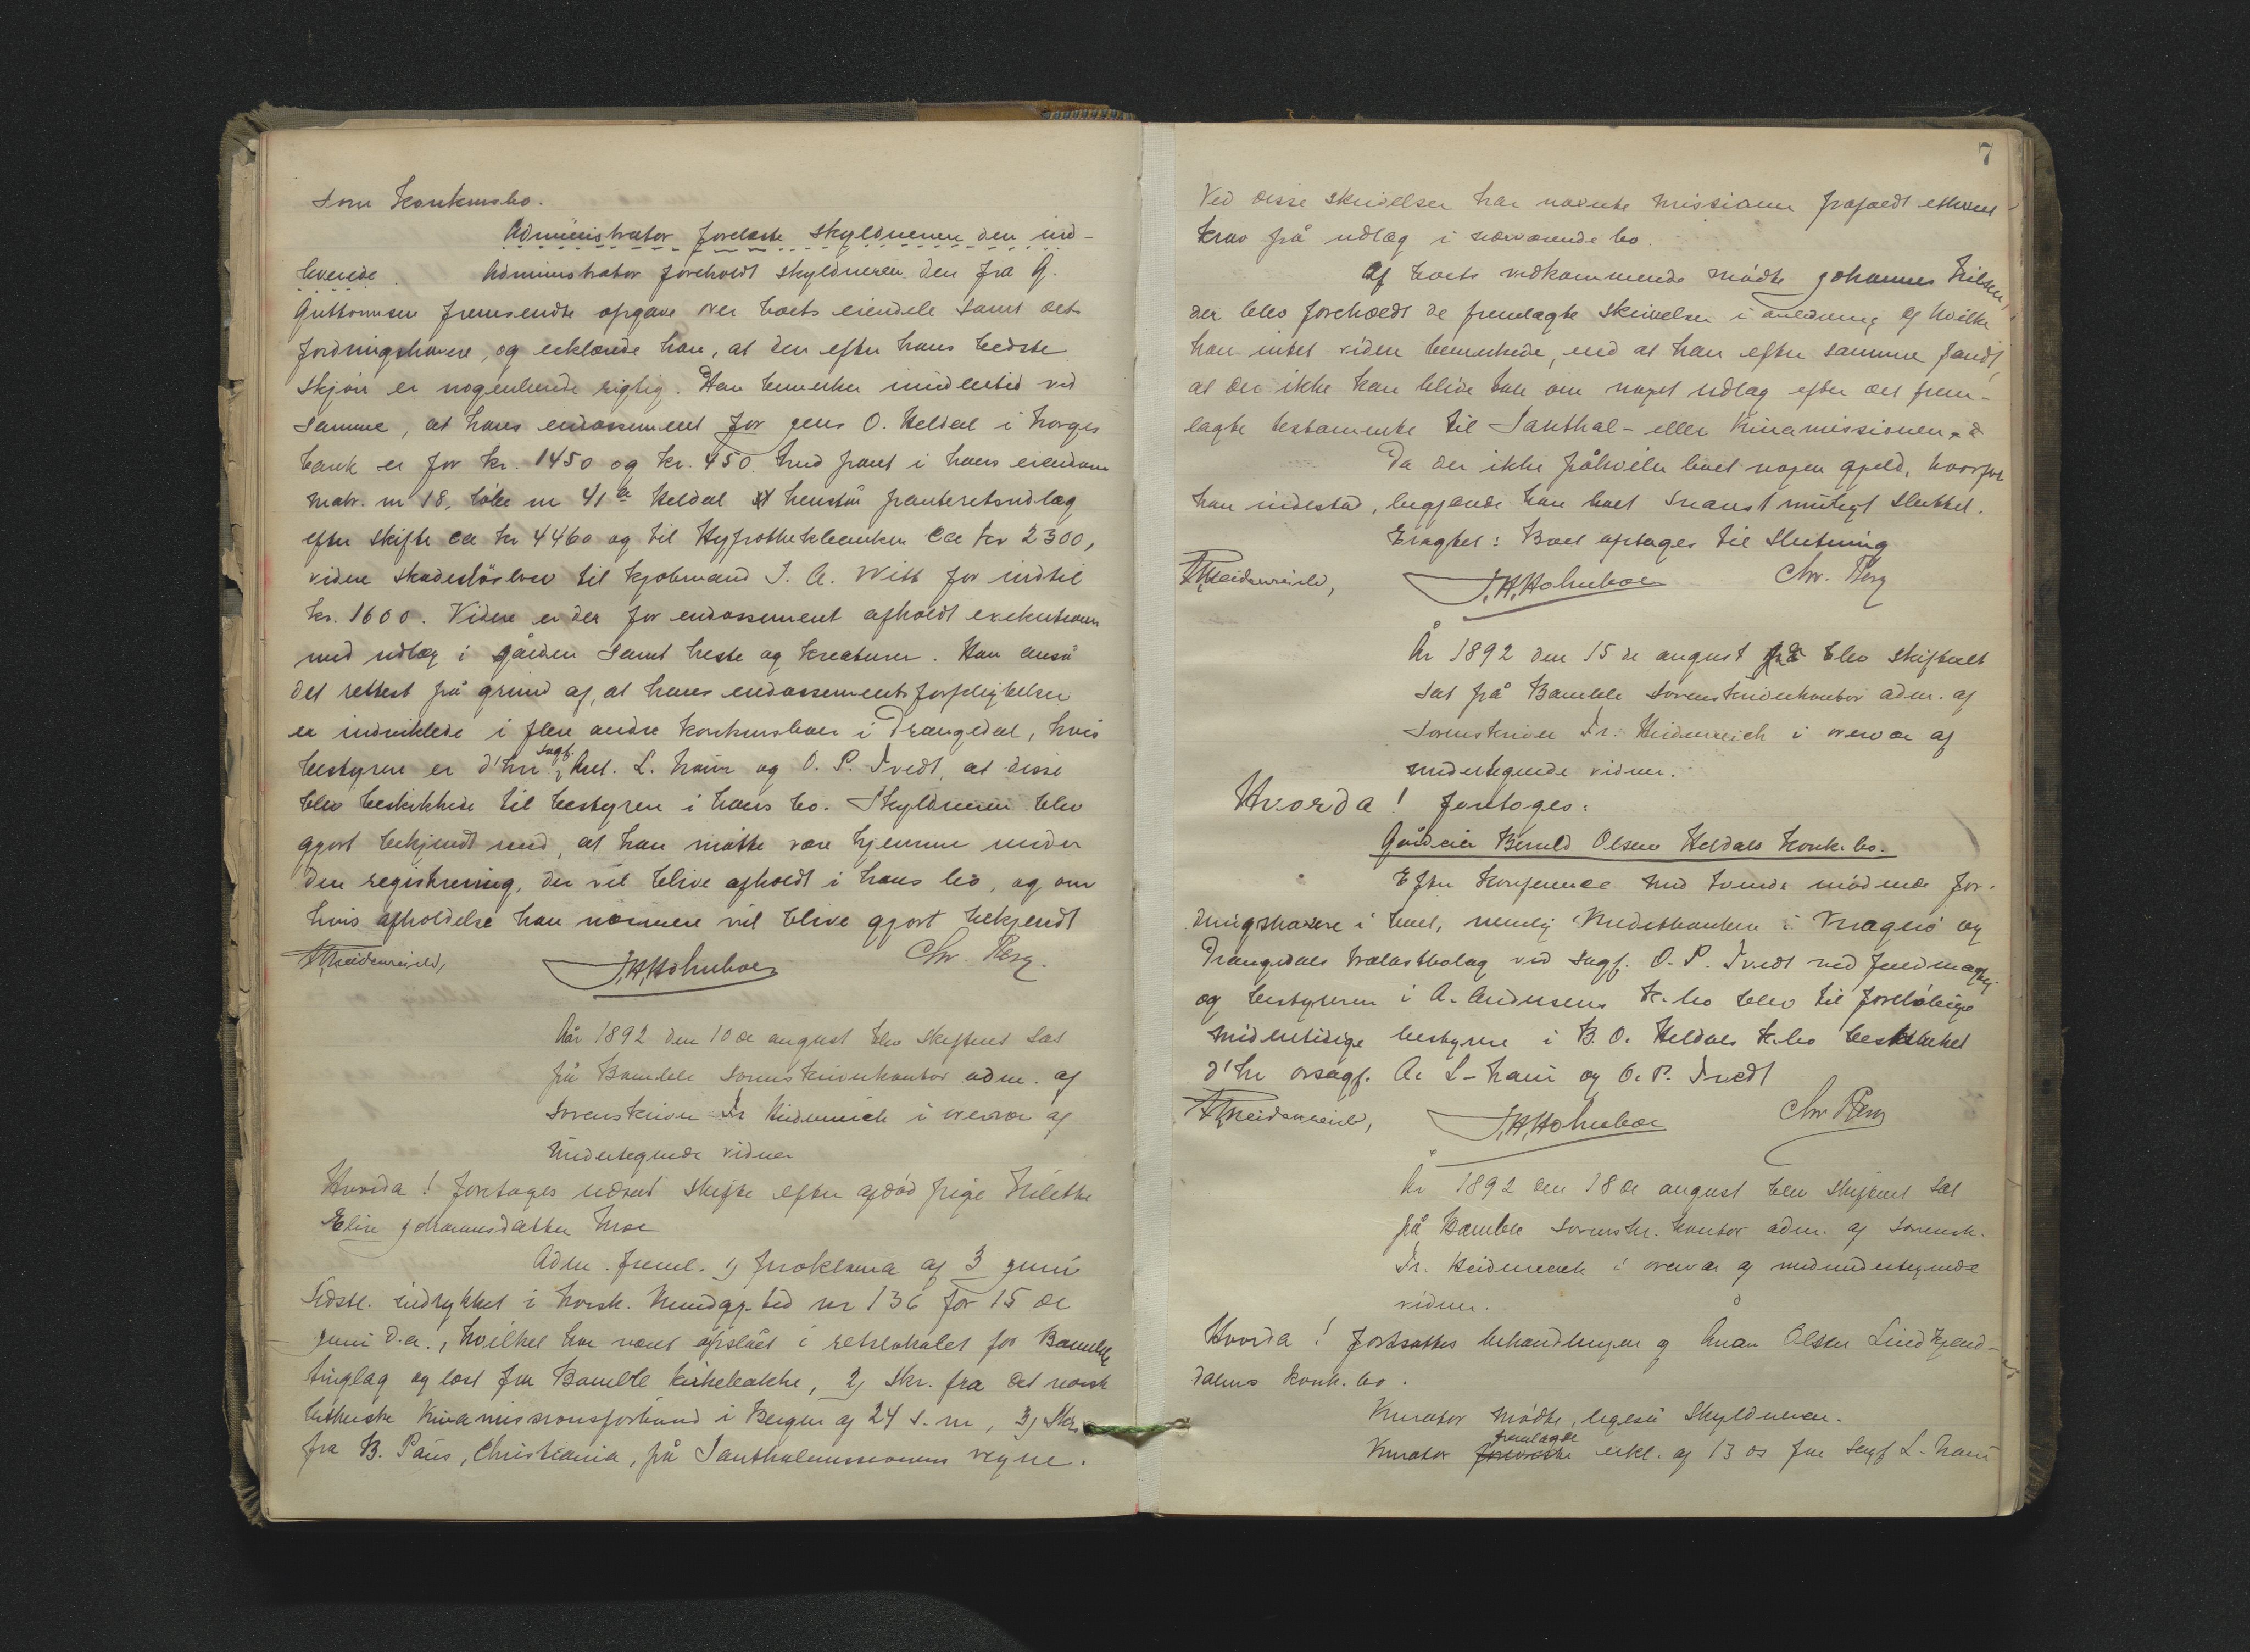 som Konkursbo.
Administrator forelæste skyldneren den ind-
hverede. Administrator foreholdt skyldneren den fra G.
Guttormsen fremsendte opgave over boets eiendele samt dets
fordringshavere, og erklærede han, at den efter hans bedste
skjøn er nogenlunde rigtig. Han bemerker imidlertid ved
samme, at hans endossement for Jens O. Heldal i Norges
bank er for kr. 1450 og kr. 450. Med pant i hans eiendom
matr. nr 18, løbe nr 41 a Heldal henstår panteretsudlæg
efter skifte ca kr 4460 og til Hypothekbanken ca kr 2300,
videre skadesløsbrev til kjøbmand J. A. Witt for indtil
kr. 1600. Videre er der for endossement afholdt exekution
med udlæg i gården samt heste og kreaturer. Han anså
det rettest på grund af, at hans endossementsforpligtelser
er indviklede i flere andre konkursboer i Drangedal, hvis
bestyrere er d'hrr sagf. Aul. L. Naur og O. P. Tvedt, at disse
blev beskikkede til bestyrere i hans bo. Skyldneren blev
gjort bekjendt med, at han måtte være hjemme under
den registrering, der vil blive afholdt i hans bo, og om
hvis afholdelse han nærmere vil blive gjort bekjendt
FHeidenreich, J.H.Holmboe Chr. Berg.
Aår 1892 den 10de august blev skifteret sat
på Bamble Sorenskriverkontor adm. af
Sorenskriver Fr Heidenreich i overvær af
undertegnede vidner
Hvorda! foretoges udsat skifte efter afdød pige Nilette
Elise Johannesdatter Moe
Adm. freml. 1) proklama af 3 juni
sidstl. indrykket i Norsk. Kundgj.tid nr 136 for 15 de
juni d.a., hvilket har været opslået i retslokalet for Bamble
tinglag og læst for Bamble kirkebakke, 2) Skr. fra det norsk
lutherske Kinamissionsforbund i Bergen af 24 s. m, 3) Skr.
fra B. Paus, Christiania, på Santhalmissionens vegne.
7
Ved disse skrivelser har nævnte missioner frafaldt ethvert
krav på udlæg i nærværende bo.
Af boets vedkommende mødte Johannes Nilsen,
der blev foreholdt de fremlagte skrivelser i anledning af hvilke
han intet videre bemerkede, end at han efter samme fandt,
at der ikke kan blive tale om noget udlæg efter det frem-
lagte testamente til Santhal- eller Kinamissionen.
Da der ikke påhviler boet nogen gjeld, hvorfor
han indestod, begjærede han boet snarest muligt sluttet.
Eragtet: Boet optages til Slutning
FHeidenreich, J.H.Holmboe Chr. Berg
År 1892 den 15 de august blev skifteret
sat på Bamble Sorenskriverkontor adm. af
Sorenskriver Fr. Heidenreich i overvær af
undertegnede vidner.
Hvorda! foretoges:
Gårdeier Beruld Olsen Heldals konk. bo.
Efter konference med tvende mødende for-
dringshavere i boet, nemlig Kreditbanken i Kragerø og
Drangedals trælastbolag ved sagf. O. P. Tvedt ved fuldmægtig
og bestyreren i A. Andersens k.bo blev til foreløbige
midlertidige bestyrere i B. O. Heldals k.bo beskikket
d'hr orsagf. A. L- Naur og O. P. Tvedt
FHeidenreich, J.H.Holmboe Chr Berg
År 1892 den 18 de august blev skifteret sat
på Bamble sorenskr. kontor adm. af sorensk.
Fr. Heidenreich i overvær af medundertegnede
vidner.
Hvorda! fortsattes behandlingen af Olsen Lindkjend-
dalens konk. bo.
Kurator mødte, ligeså Skyldneren.
Kurator fremlagde erkl. af 13 ds fra Sagf L. Naur